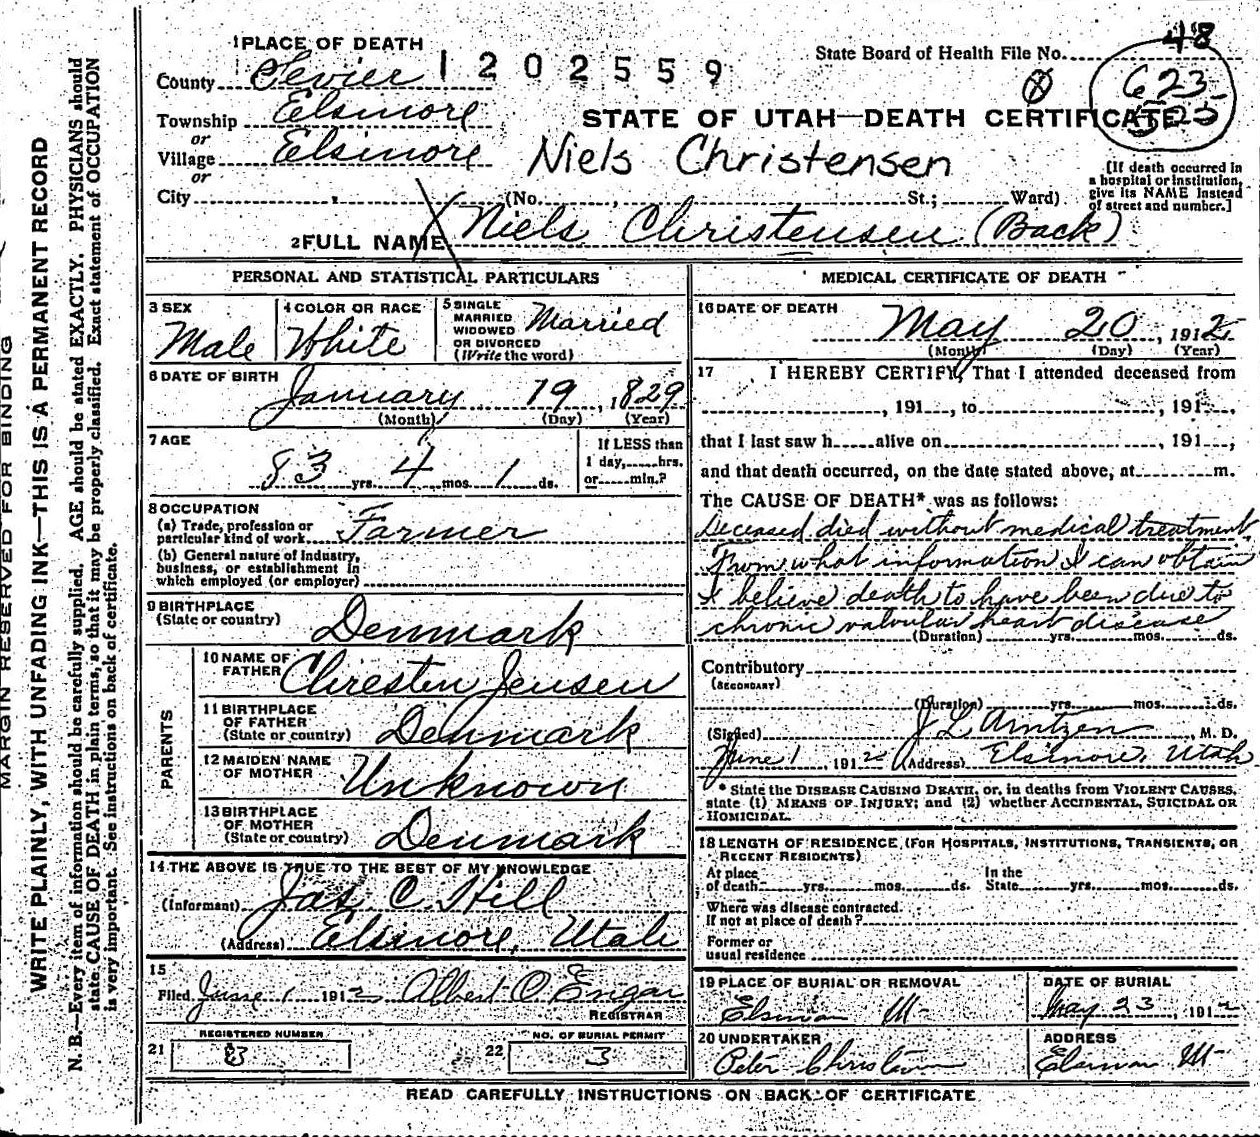 48
1 PLACE OF DEATH
State Board of Health File No.
623
525
County Sevier 1202559
Township Elsinore
STATE OF UTAH—DEATH CERTIFICATE
or
Village Elsinore
Niels Christensen
or
City (No. , St.; Ward)
[If death occurred in
a hospital or institution,
give its NAME instead
of street and number.]
2 FULL NAME Niels Christensen (Back)
PERSONAL AND STATISTICAL PARTICULARS
3 SEX
Male
4 COLOR OR RACE
White
5 SINGLE
MARRIED
WIDOWED
OR DIVORCED
(Write the word)
Married
6 DATE OF BIRTH
January 19, 1829
(Month) (Day) (Year)
7 AGE
83 yrs. 4 mos. 1 ds.
If LESS than
1 day, hrs.
or min.?
8 OCCUPATION
(a) Trade, profession or
particular kind of work Farmer
(b) General nature of industry,
business, or establishment in
which employed (or employer)
9 BIRTHPLACE
(State or country)
Denmark
PARENTS
10 NAME OF
FATHER Chresten Jensen
11 BIRTHPLACE
OF FATHER
(State or country) Denmark
12 MAIDEN NAME
OF MOTHER Unknown
13 BIRTHPLACE
OF MOTHER
(State or country) Denmark
14 THE ABOVE IS TRUE TO THE BEST OF MY KNOWLEDGE
(Informant) Jas. C. Hill
(Address) Elsinore, Utah
15
Filed June 1 1912 Albert O Engar
REGISTRAR
REGISTERED NUMBER
21 8
NO. OF BURIAL PERMIT
22 3
MEDICAL CERTIFICATE OF DEATH
16 DATE OF DEATH
May 20, 1912
(Month) (Day) (Year)
17 I HEREBY CERTIFY, That I attended deceased from
, 191 , to , 191 ,
that I last saw h alive on , 191 ;
and that death occurred, on the date stated above, at m.
The CAUSE OF DEATH* was as follows:
Deceased died without medical treatment.
From what information I can obtain
I believe death to have been due to
chronic valvular heart disease
(Duration) yrs. mos. ds.
Contributory
(SECONDARY)
(Duration) yrs. mos. ds.
(Signed) J L Arntzen M. D.
June 1, 1912 (Address) Elsinore, Utah
* State the DISEASE CAUSING DEATH, or, in deaths from VIOLENT CAUSES,
state (1) MEANS OF INJURY; and (2) whether ACCIDENTAL, SUICIDAL OR
HOMICIDAL.
18 LENGTH OF RESIDENCE (FOR HOSPITALS, INSTITUTIONS, TRANSIENTS, OR
RECENT RESIDENTS)
At place
of death yrs. mos. ds.
In the
State yrs. mos. ds.
Where was disease contracted.
if not at place of death?
Former or
usual residence
19 PLACE OF BURIAL OR REMOVAL
DATE OF BURIAL
May 23, 1912
20 UNDERTAKER
Peter
ADDRESS
READ CAREFULLY INSTRUCTIONS ON BACK OF CERTIFICATE
MARGIN RESERVED FOR BINDING
WRITE PLAINLY, WITH UNFADING INK—THIS IS A PERMANENT RECORD
N. B.—Every item of information should be carefully supplied. AGE should be stated EXACTLY. PHYSICIANS should
state CAUSE OF DEATH in plain terms, so that it may be properly classified. Exact statement of OCCUPATION
is very important. See instructions on back of certificate.